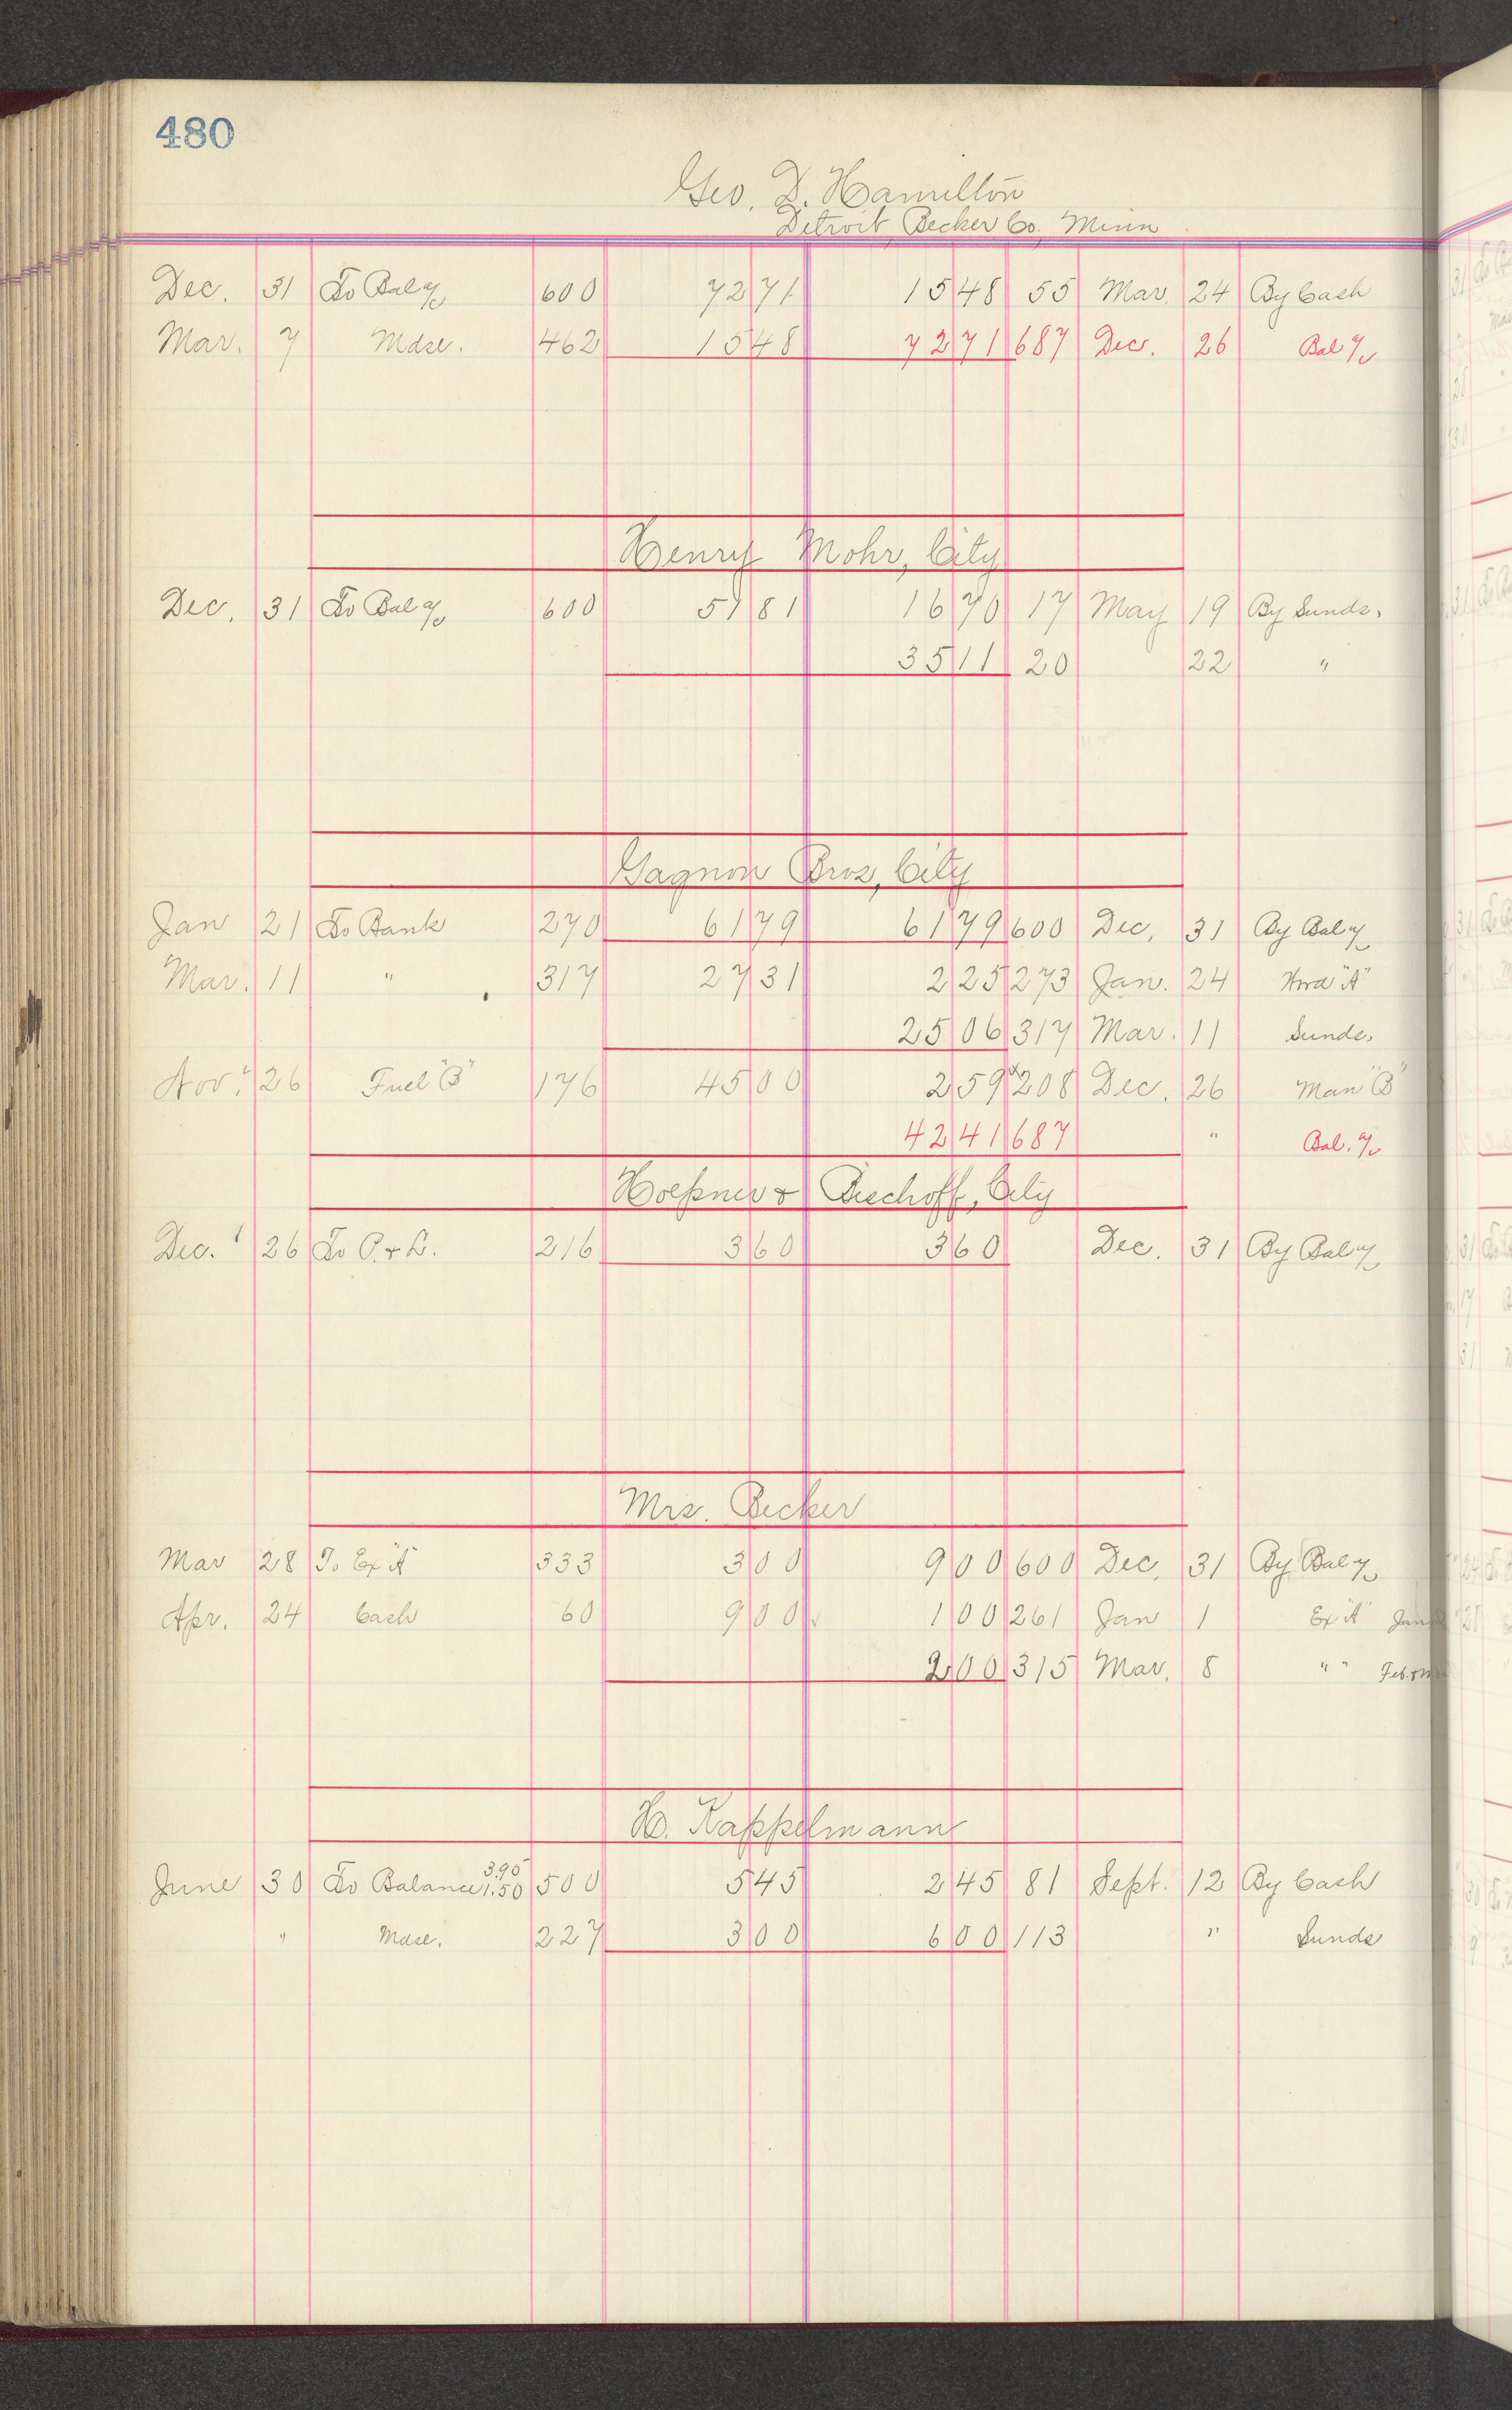 480
Geo. D. Hamilton
Detroit Becker Co. Minn
Dec. 31 To Bal a/c 600 72 71 15 48 55 Mar. 24 By Cash
Mar. 7 Mdse. 462 15 48 72 71 687 Dec. 26 Bal a/c
Henry Mohr, City
Dec. 31 To Bal a/c 600 51 81 16 70 17 May 19 By Sunds.
35 11 20 22 "
Gagnon Bros, City
Jan 21 To Bank 270 61 79 61 79 600 Dec. 31 By Bal a/c
Mar. 11 " 317 27 31 2 25 273 Jan. 24 "A"
25 06 317 Mar. 11 Sunds.
Nov. 26 Fuel "B" 176 45 00 2 59 208 Dec. 26 Man "B"
42 41 687 " Bal. a/c
Hoepner & Bischoff, City
Dec. 26 To P. & L. 216 3 60 3 60 Dec. 31 By Bal a/c
Mrs. Becker
Mar 28 To Ex "A" 333 3 00 9 00 600 Dec. 31 By Bal a/c
Apr. 24 Cash 60 9 00 1 00 261 Jan 1 Ex "A" Jan
2 00 315 Mar. 8 " " Feb. &
H. Kappelmann
June 30 To Balance 3.95 1.50 500 5 45 2 45 81 Sept. 12 By Cash
" Mdse. 227 3 00 6 00 113 " Sunds